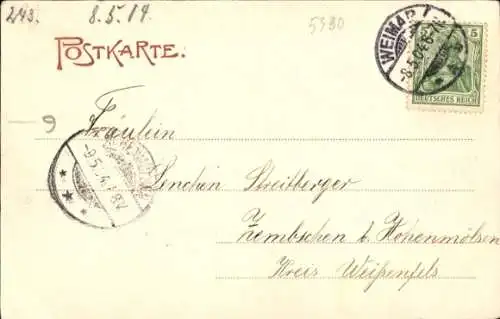 243. 8.5.14 5330
POSTKARTE.
WEIMAR 1
8.5.04.8-
5
DEUTSCHES REICH
9
Fräulein
9.5.4.
Lenchen Streitberger
Zembschen b. Hohenmölsen
Kreis Weißenfels